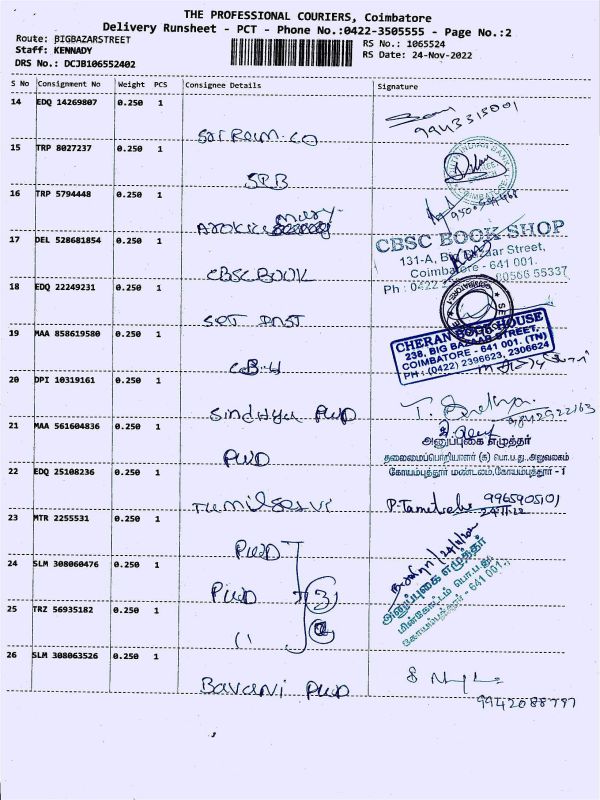 THE PROFESSIONAL COURIERS, Coimbatore
Delivery Runsheet - PCT - Phone No.:0422-3505555 - Page No.:2
Route: BIGBAZARSTREET
Staff: KENNADY
DRS No.: DCJB106552402
RS No.: 1065524
RS Date: 24-Nov-2022
S No Consignment No Weight PCS Consignee Details Signature
14 EDQ 14269807 0.250 1
9943315001
15 TRP 8027237 0.250 1
SRB
16 TRP 5794448 0.250 1
mary
17 DEL 528681854 0.250 1
CBSC BOOK
CBSC BOOK SHOP
131-A, Street,
Coimbatore - 641 001.
Ph : 0422 80566 55337
18 EDQ 22249231 0.250 1
19 MAA 858619580 0.250 1
CB-H
CHERAN BOOK HOUSE
238, BIG BAZAAR STREET,
COIMBATORE - 641 001. (TN)
PH : (0422) 2396623, 2306624
20 DPI 10319161 0.250 1
Sindhya PWD
9842922163
21 MAA 561604836 0.250 1
PWD
அனுப்புகை எழுத்தர்
தலைமைப்பொறியாளர் (க) பொ.ப.து.,அலுவலகம்
கோயம்புத்தூர் மண்டலம்,கோயம்புத்தூர் - 1
22 EDQ 25108236 0.250 1
Tamilselvi
9965905101
23 MTR 2255531 0.250 1
PWD
24 SLM 308060476 0.250 1
PWD
3
அனுப்புகை எழுத்தர்
மின்கோட்டம் பொ.ப.து
கோயம்புத்தூர் - 641 001.
25 TRZ 56935182 0.250 1
26 SLM 308063526 0.250 1
Bavani PWD
9942088797